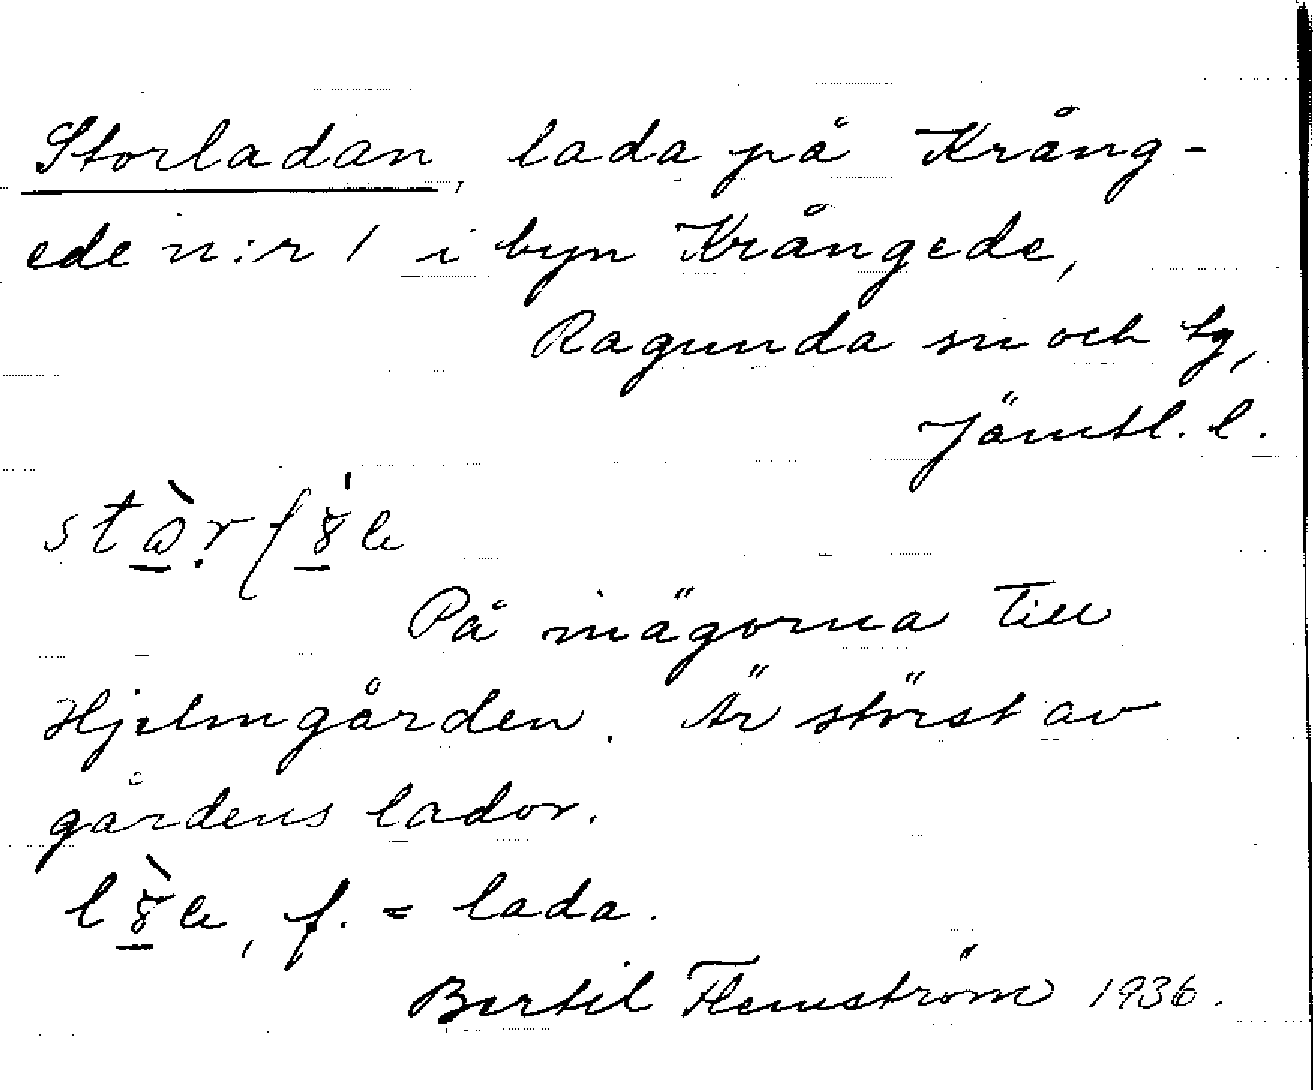 Storladan, lada på Krång-
ede n:r 1 i byn Krångede,
Ragunda sn och tg,
Jämtl. l.
På inägorna till
Hjelmgården. Är störst av
gårdens lador.
f. = lada.
Bertil Flemström 1936.